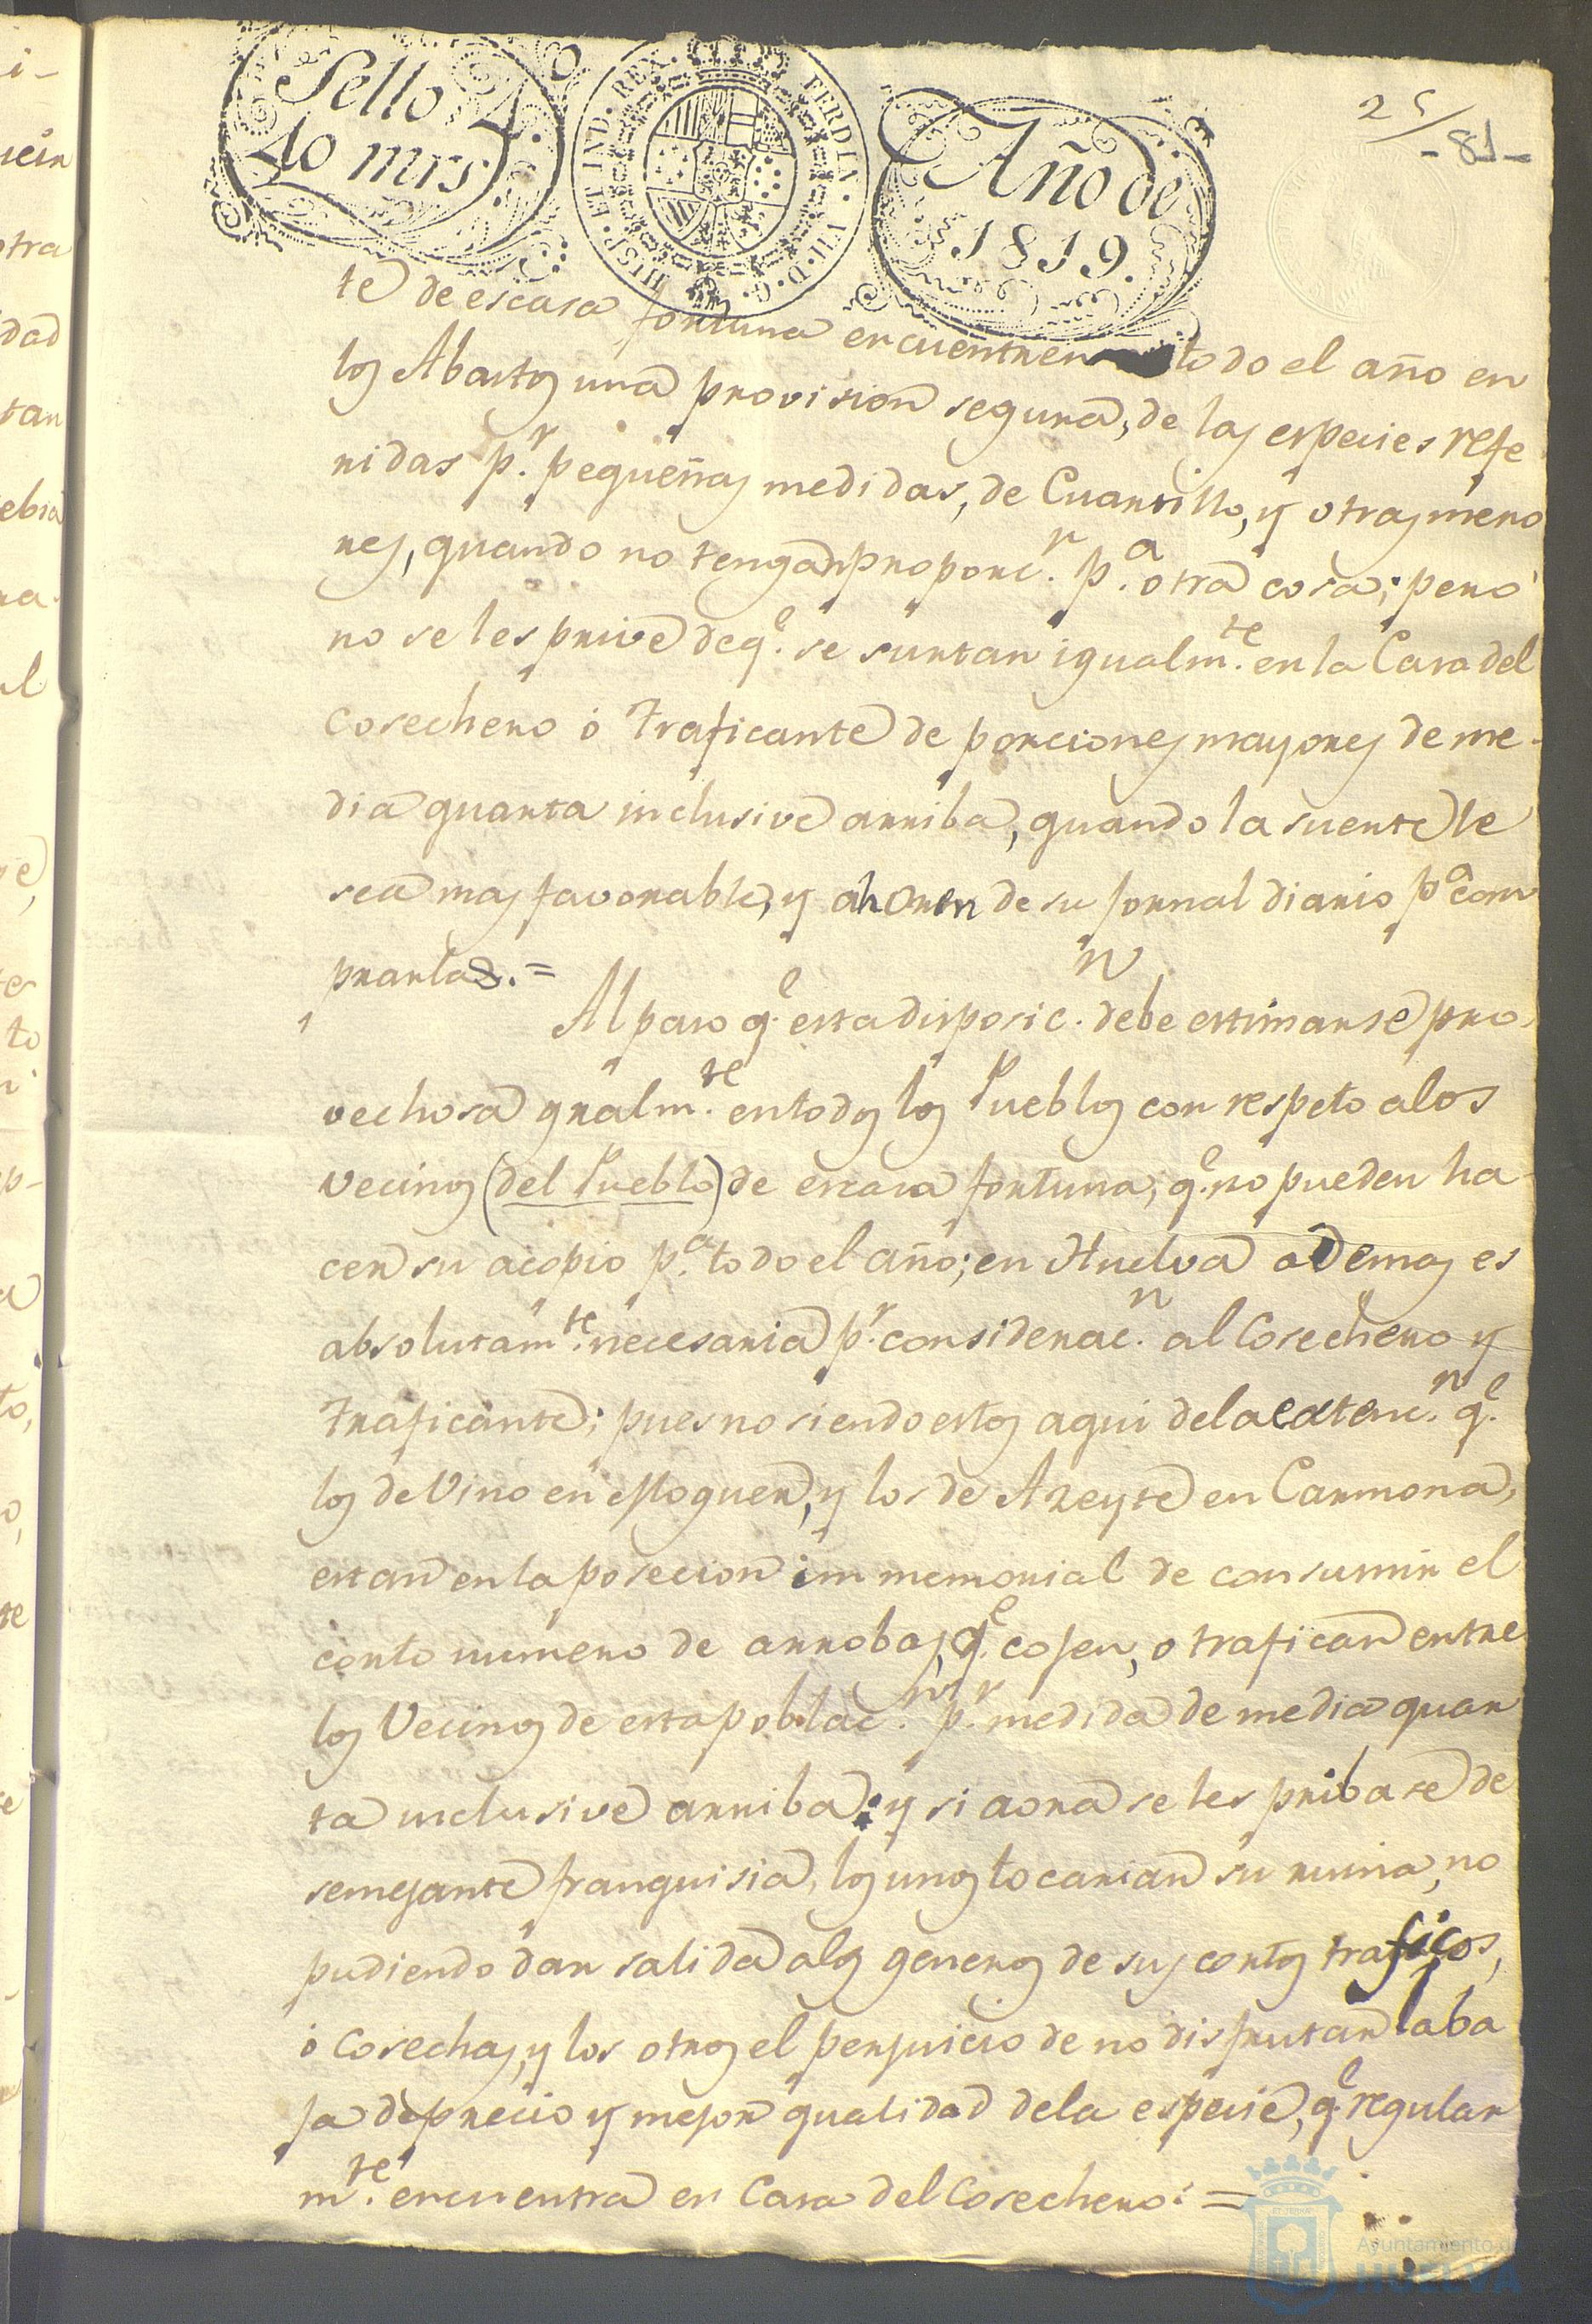 Sello 4º
40 mrs
HISP. ET IND. REX. FERDIN. VII. D. G.
Año de
1819.
25
-81-
te de escasa fortuna encuentren todo el año en
los Abastos una provision segura, de las especies refe
ridas p.r pequeñas medidas, de Cuartillo, y otras meno
res, quando no tengan proporc.n p.a otra cosa; pero
no se les prive de q.e se surtan igualm.te en la Casa del
Cosechero ó Traficante de porciones mayores de me-
dia quarta inclusive arriba, quando la suerte le
sea mas favorable, y ahorren de su jornal diario p.a com
prarlas.=
Al paso q.e esta disposic.n debe estimarse pro-
vechosa gralm.te en todos los Pueblos con respeto a los
vecinos (del Pueblo) de escasa fortuna, q.e no pueden ha
cer su acopio p.a todo el año; en Huelva ademas es
absolutam.te necesaria p.r considerac.n al Cosechero y
traficante; pues no siendo estos aqui de la extenc.n q.e
los de Vino en Moguer, y los de Azeyte en Carmona,
estan en la posecion immemorial de consumir el
corto numero de arrobas, q.e cojen, o trafican entre
los Vecinos de esta poblac.n p.r medida de media quar
ta inclusive arriba: y si aora se les pribase de
semejante franquisia, los unos tocarian su ruina, no
pudiendo dar salida a los generos de sus cortos traficos,
ó Cosechas, y los otros el perjuicio de no disfrutar la ba
ja de precio y mejor qualidad de la especie, q.e regular
m.te encuentra en Casa del Cosechero: =
Ayuntamiento de
HUELVA